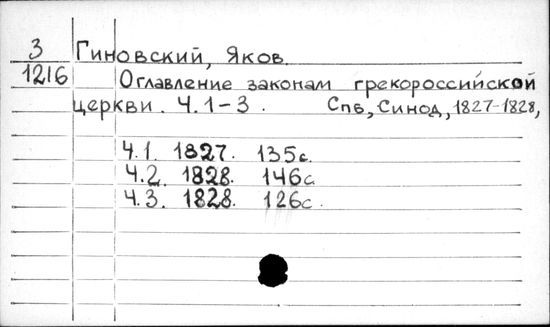 3 Гиновский, Яков.
1216 Оглавление законам грекороссийской
церкви. Ч.1-3. Спв, Синод, 1827-1828,
Ч.1. 1827. 135с.
Ч.2. 1828. 146с.
Ч.3. 1828. 126с.